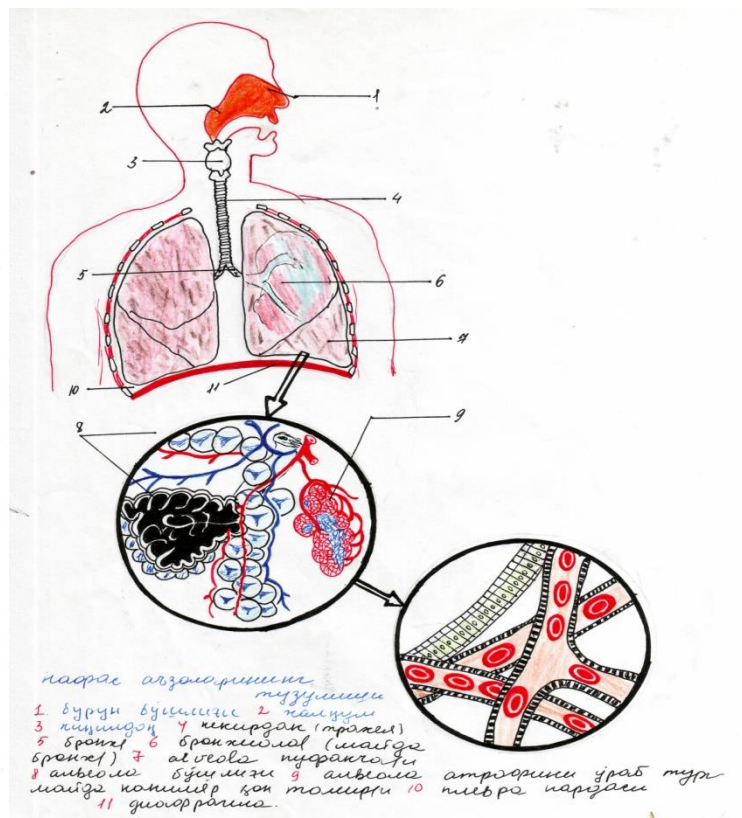 1
2
3
4
5
6
7
10
11
8
9
нафас аъзоларининг
тузулиши
1. бурун бўшлиғи 2 халқум
3 хиқилдоқ 4 кекирдак (трахея)
5 бронх 6 бронхиола (майда
бронх) 7 alveola пуфакчаси
8 альвеола бўшлиғи 9 альвеола атрофини ўраб тур
майда капиляр қон томири 10 плевра пардаси
11 диафрагма.